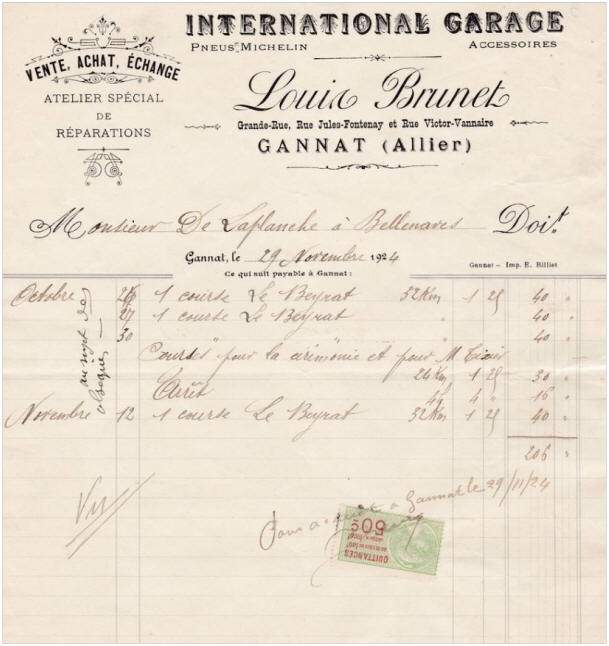 INTERNATIONAL GARAGE
PNEUS MICHELIN ACCESSOIRES
VENTE, ACHAT, ÉCHANGE
ATELIER SPÉCIAL
DE
RÉPARATIONS
Louis Brunet
Grande-Rue, Rue Jules-Fontenay et Rue Victor-Vannaire
GANNAT (Allier)
Monsieur De Laplanche à Bellenaves Doit
Gannat, le 29 Novembre 1924
Gannat — Imp. E. Rilliet
Ce qui suit payable à Gannat :
Octobre 26 1 course Le Beyrat 32 Km 1 25 40 "
27 1 course Le Beyrat " 40 "
30 " 40 "
au sujet des obsèques
Courses pour la cérémonie et pour M
24 Km 1 25 30 "
Arrêt 4 4 " 16 "
Novembre 12 1 course Le Beyrat 32 Km 1 25 40 "
206 "
Vu
Pour acquit à Gannat le 29/11/24
QUITTANCES
50c